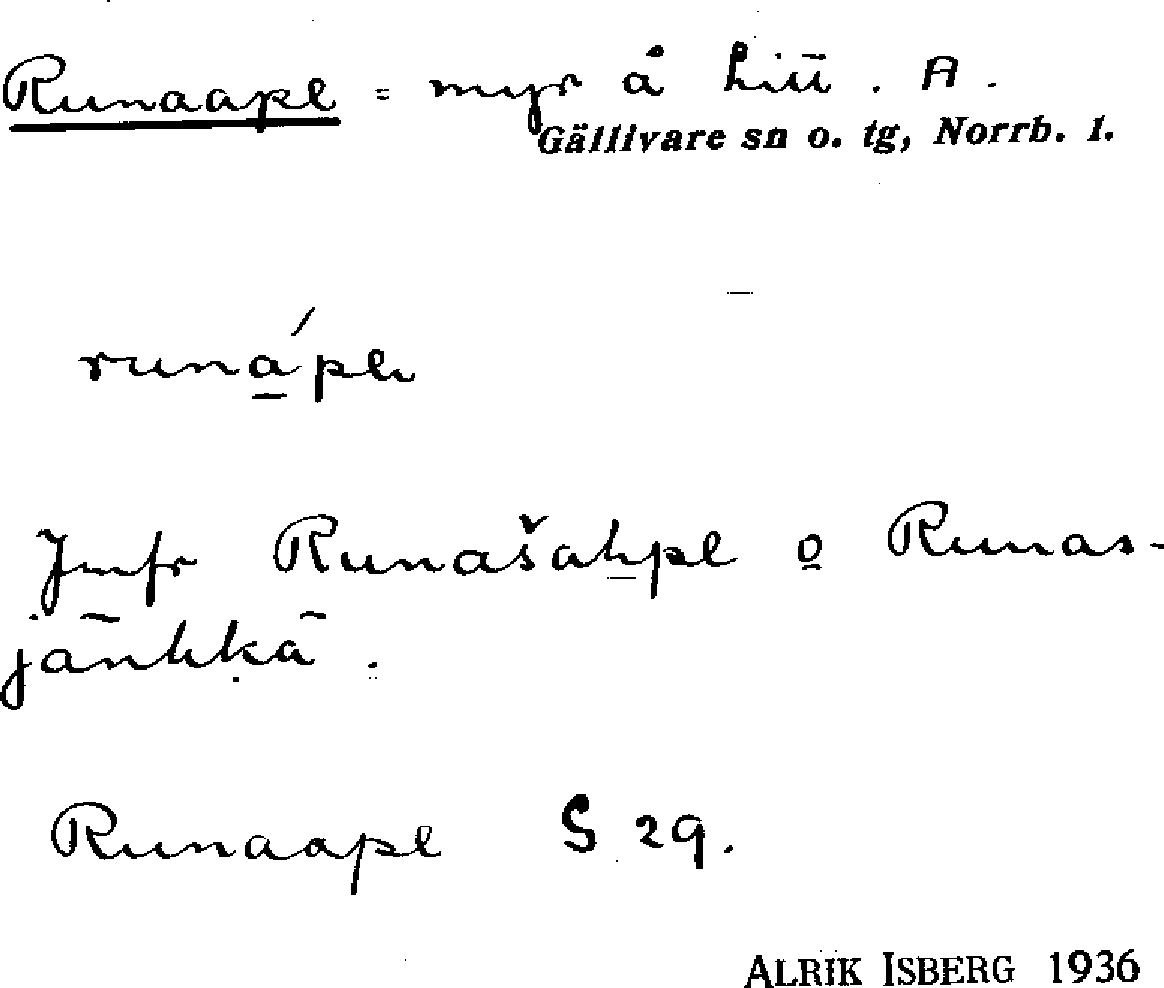 Runaape = myr å Lill. A.
Gällivare sn o. tg, Norrb. l.
Jmfr Runašahpe o Runas-
jänkkä.
Runaape S 29.
ALRIK ISBERG 1936